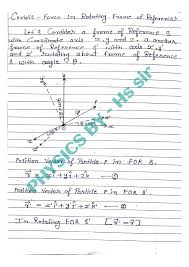 Coriolis - Force in Rotating Frame of Reference:
Let's Consider a frame of Reference S
with Coordinate axis x, y and z, & another
frame of Reference S' with axis x', y'
and z' rotating about frame of Reference
S with angle θ.
PHYSICS BY - HS Sir
Position Vector of Particle P in FOR S.
r⃗ = xî + yĵ + zk̂ - ①
Position Vector of Particle P in FOR S'.
r⃗' = x'î' + y'ĵ' + z'k̂' - ②
In Rotating FOR S' [r⃗ = r⃗']